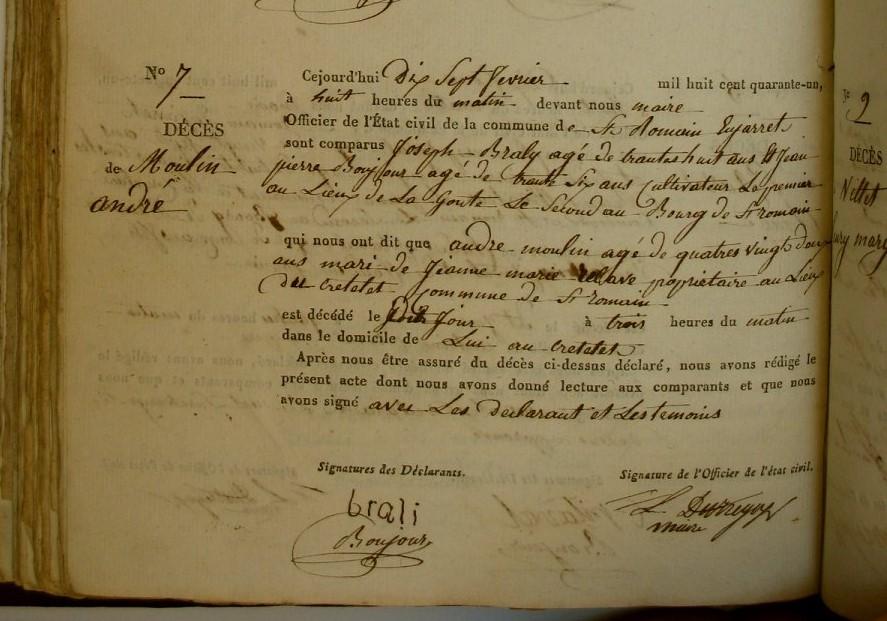 No 7
DÉCÈS
de Moulin
andré
Cejourd'hui Dix Sept fevrier mil huit cent quarante-un,
à huit heures du matin devant nous maire
Officier de l'État civil de la commune de St Romain Enjarret
sont comparus Joseph Braly agé de trantes huit ans Et Jean
pierre Boujour agé de trante Six ans Cultivateur Le premier
au Lieux de La Goute Le Second au Bourg de St romain
qui nous ont dit que andre moulin agé de quatres vingt deux
ans mari de Jeanne marie propriétaire au Lieux
du cretetet Commune de St romain
est décédé le Jour à trois heures du matin
dans le domicile de Lui au cretetet
Après nous être assuré du décès ci-dessus déclaré, nous avons rédigé le
présent acte dont nous avons donné lecture aux comparants et que nous
avons signé avec Les declarant et Les temoins
Signatures des Déclarants.
Signature de l'Officier de l'état civil.
brali
Boujour
maire
9
DÉCÈS
mary